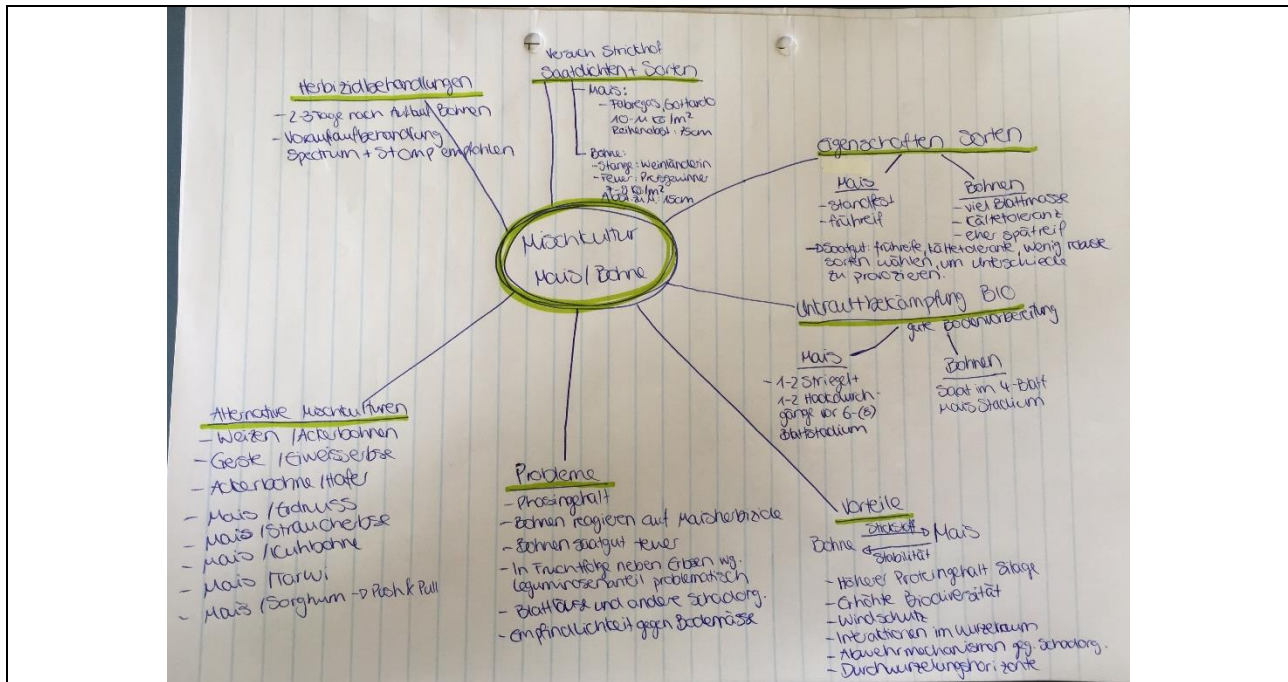 Mischkultur
Mais/Bohne
Herbizidbehandlungen
- 2-3 Tage nach Bohnen
- Vorauflaufbehandlung
Spectrum + Stomp empfohlen
Versuch Strickhof
Saatdichten + Sorten
- Mais:
- Fabregas/Gottardo
10-11 /m²
Reihenabst.: 75cm
- Bohne:
- Stange: Weinländerin
- Feuer: Preisgewinner
/m²
15cm
Eigenschaften Sorten
Mais
- standfest
- frühreif
Bohnen
- viel Blattmasse
- Kältetoleranz
- eher spätreif
→ Saatgut: frühreife, kältetolerante, wenig robuste
Sorten wählen, um Unterschiede
zu provozieren.
Unkrautbekämpfung BIO
gute Bodenvorbereitung
Mais
- 1-2 Striegel +
1-2 Hackdurch-
gänge vor 6-(8)
Blattstadium
Bohnen
Saat im 4-Blatt
Mais Stadium
Vorteile
Bohne Stickstoff → Mais
← Stabilität
- Höherer Proteingehalt Silage
- Erhöhte Biodiversität
- Windschutz
- Interaktionen im Wurzelraum
- Abwehrmechanismen geg. Schadorg.
- Durchwurzelungshorizonte
Probleme
- Phasingehalt
- Bohnen reagieren auf Maisherbizide
- Bohnen saatgut teuer
- In Fruchtfolge neben Erbsen wg.
Leguminosenanteil problematisch
- Blattläuse und andere Schadorg.
- Empfindlichkeit gegen Bodennässe
Alternative Mischkulturen
- Weizen / Ackerbohnen
- Gerste / Eiweisserbse
- Ackerbohne / Hafer
- Mais / Erdnuss
- Mais / Straucherbse
- Mais / Kuhbohne
- Mais / Tarwi
- Mais / Sorghum → Push & Pull